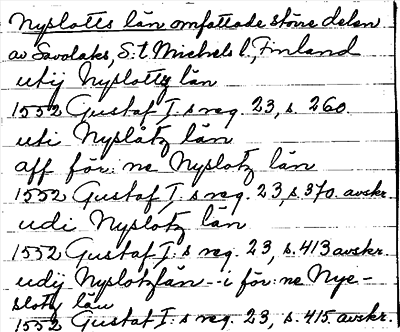 Nyslotts län omfattade större delen
av Savolaks, S:t Michels l., Finland
utij Nyslottz län
1552 Gustaf I:s reg. 23, s. 260.
uti Nyslåtz län
aff för:ne Nyslotz län
1552 Gustaf I:s reg. 23, s. 370. avskr.
udi Nyslotz län
1552 Gustaf I:s reg. 23, s. 413 avskr.
udij Nyslotzlän - i för:ne Nye-
slotz län
1552 Gustaf I:s reg. 23, s. 415. avskr.